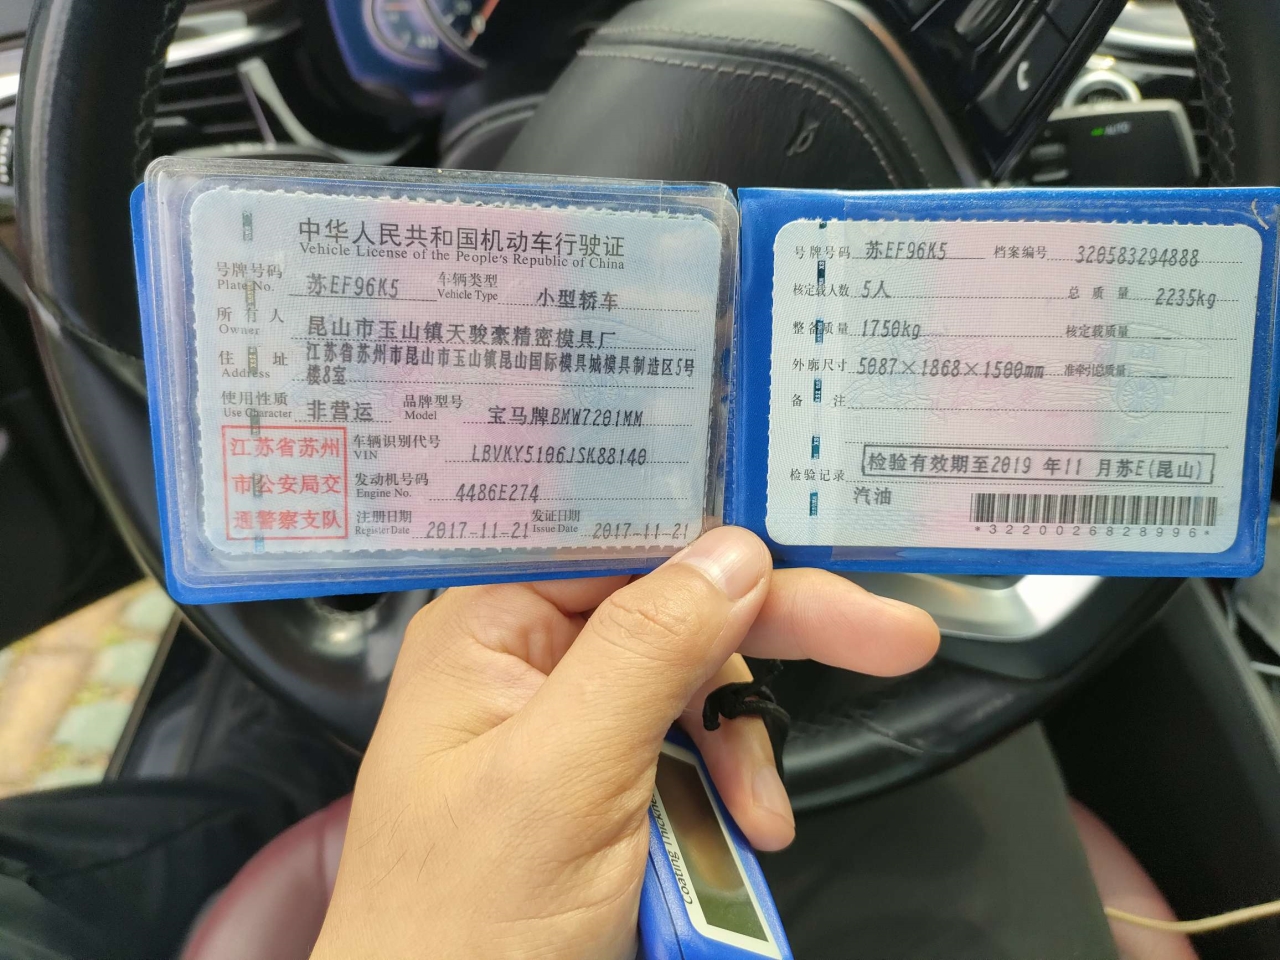 中华人民共和国机动车行驶证
Vehicle License of the People's Republic of China
号牌号码 苏EF96K5 车辆类型 小型轿车
Plate No. Vehicle Type
所有人 昆山市玉山镇天骏豪精密模具厂
Owner
住址 江苏省苏州市昆山市玉山镇昆山国际模具城模具制造区5号
Address 楼8室
使用性质 非营运 品牌型号 宝马牌BMW7201MM
Use Character Model
江苏省苏州
市公安局交
通警察支队
车辆识别代号 LBVKY5106JSK88140
VIN
发动机号码 4486E274
Engine No.
注册日期 2017-11-21 发证日期 2017-11-21
Register Date Issue Date
号牌号码 苏EF96K5 档案编号 320583294888
核定载人数 5人 总质量 2235kg
整备质量 1750kg 核定载质量
外廓尺寸 5087×1868×1500mm 准牵引总质量
备注
检验记录 检验有效期至2019 年11 月苏E(昆山)
汽油
*3220026828996*
AUTO
coating thickness